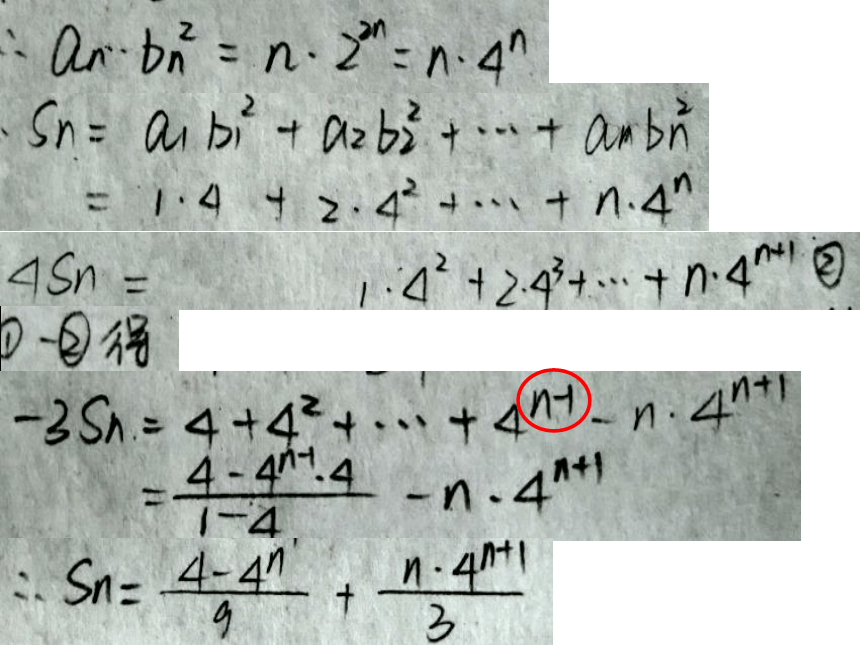 ∴ an·bn² = n·2²ⁿ = n·4ⁿ
Sn = a₁b₁² + a₂b₂² + ··· + anbn²
= 1·4 + 2·4² + ··· + n·4ⁿ
4Sn = 1·4² + 2·4³ + ··· + n·4ⁿ⁺¹ ②
① - ② 得
-3Sn = 4 + 4² + ··· + 4ⁿ⁻¹ - n·4ⁿ⁺¹
= (4 - 4ⁿ⁻¹·4)/(1-4) - n·4ⁿ⁺¹
∴ Sn = (4 - 4ⁿ)/9 + (n·4ⁿ⁺¹)/3